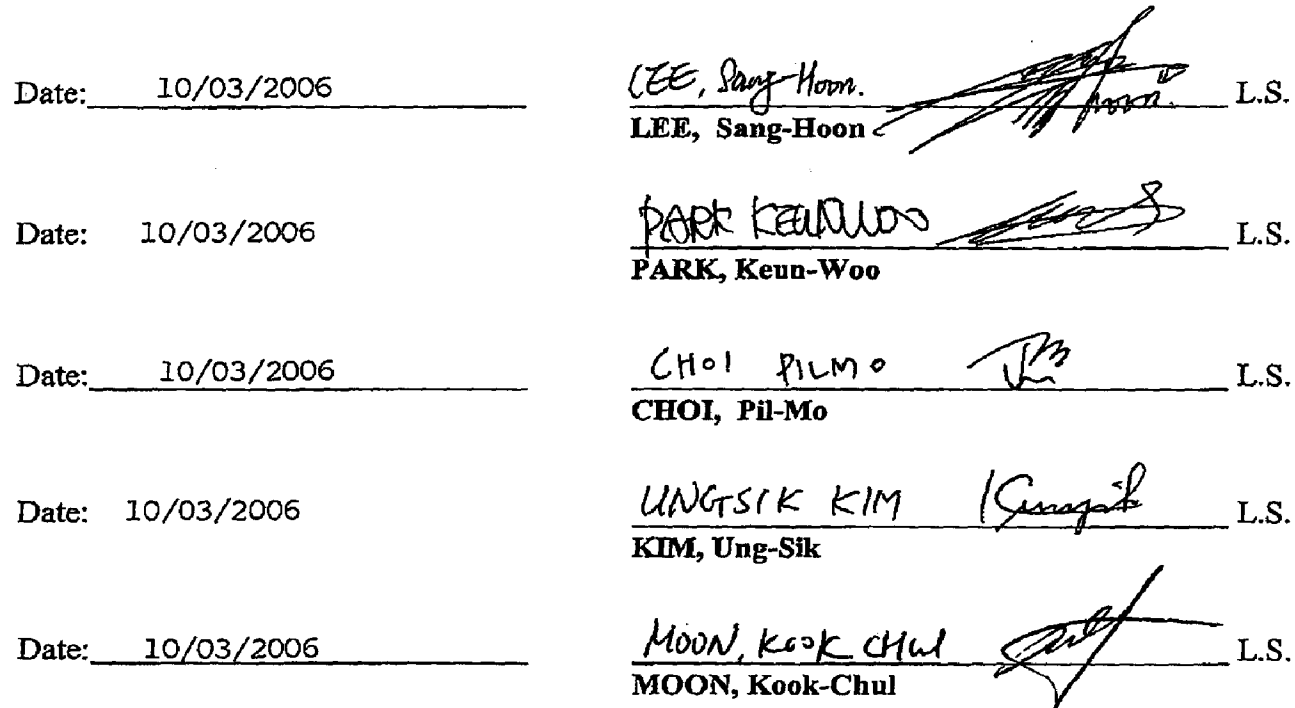 Date: 10/03/2006 LEE, Sang-Hoon. L.S.
LEE, Sang-Hoon
Date: 10/03/2006 PARK KEUNWOO L.S.
PARK, Keun-Woo
Date: 10/03/2006 CHOI PILMO L.S.
CHOI, Pil-Mo
Date: 10/03/2006 UNGSIK KIM L.S.
KIM, Ung-Sik
Date: 10/03/2006 MOON, KOOK CHUL L.S.
MOON, Kook-Chul